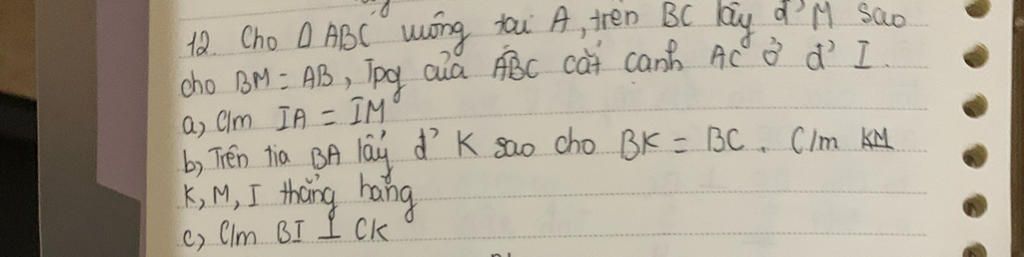 12. Cho Δ ABC vuông tại A, trên BC lấy đ' M sao
cho BM = AB, Tpg của ABC cắt cạnh AC ở đ' I.
a, C/m IA = IM
b, Trên tia BA lấy đ' K sao cho BK = BC. C/m KM
K, M, I thẳng hàng
c, C/m BI ⊥ CK